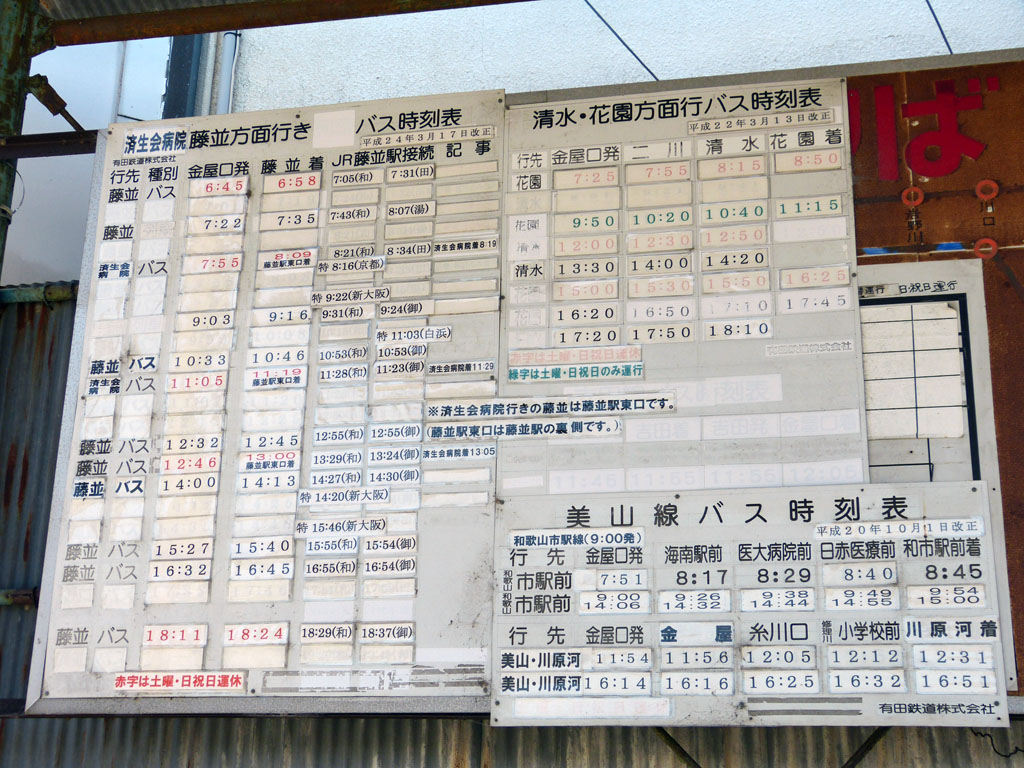 済生会病院 藤並方面行き バス時刻表
平成24年3月17日改正
有田鉄道株式会社
行先 種別 金屋口発 藤並着 JR藤並駅接続 記事
藤並 バス 6:45 6:58 7:05(和) 7:31(田)
藤並 7:22 7:35 7:43(和) 8:07(湯)
済生会病院 バス 7:55 8:09 藤並駅東口着 8:21(和) 8:34(田) 済生会病院着8:19
特 8:16(京都)
特 9:22(新大阪)
9:03 9:16 9:31(和) 9:24(御)
特 11:03(白浜)
藤並 バス 10:33 10:46 10:53(和) 10:53(御)
済生会病院 バス 11:05 11:19 藤並駅東口着 11:28(和) 11:23(御) 済生会病院着11:29
※済生会病院行きの藤並は藤並駅東口です。
(藤並駅東口は藤並駅の裏側です。)
藤並 バス 12:32 12:45 12:55(和) 12:55(御)
藤並 バス 12:46 13:00 藤並駅東口着 13:29(和) 13:24(御) 済生会病院着13:05
藤並 バス 14:00 14:13 14:27(和) 14:30(御)
特 14:20(新大阪)
特 15:46(新大阪)
藤並 バス 15:27 15:40 15:55(和) 15:54(御)
藤並 バス 16:32 16:45 16:55(和) 16:54(御)
藤並 バス 18:11 18:24 18:29(和) 18:37(御)
赤字は土曜・日祝日運休
清水・花園方面行バス時刻表
平成22年3月13日改正
行先 金屋口発 二川 清水 花園着
花園 7:25 7:55 8:15 8:50
花園 9:50 10:20 10:40 11:15
清水 12:00 12:30 12:50
清水 13:30 14:00 14:20
花園 15:00 15:30 15:50 16:25
花園 16:20 16:50 17:10 17:45
17:20 17:50 18:10
赤字は土曜・日祝日運休
緑字は土曜・日祝日のみ運行
有田鉄道株式会社
11:46 11:55 11:58 12:05
りば
運行 日祝日運行
美山線バス時刻表
平成20年10月1日改正
和歌山市駅線(9:00発)
行先 金屋口発 海南駅前 医大病院前 日赤医療前 和市駅前着
和歌山市駅前 7:51 8:17 8:29 8:40 8:45
和歌山市駅前 9:00 9:26 9:38 9:49 9:54
14:06 14:32 14:44 14:55 15:00
行先 金屋口発 金屋 糸川口 修理川小学校前 川原河着
美山・川原河 11:54 11:56 12:05 12:12 12:31
美山・川原河 16:14 16:16 16:25 16:32 16:51
有田鉄道株式会社